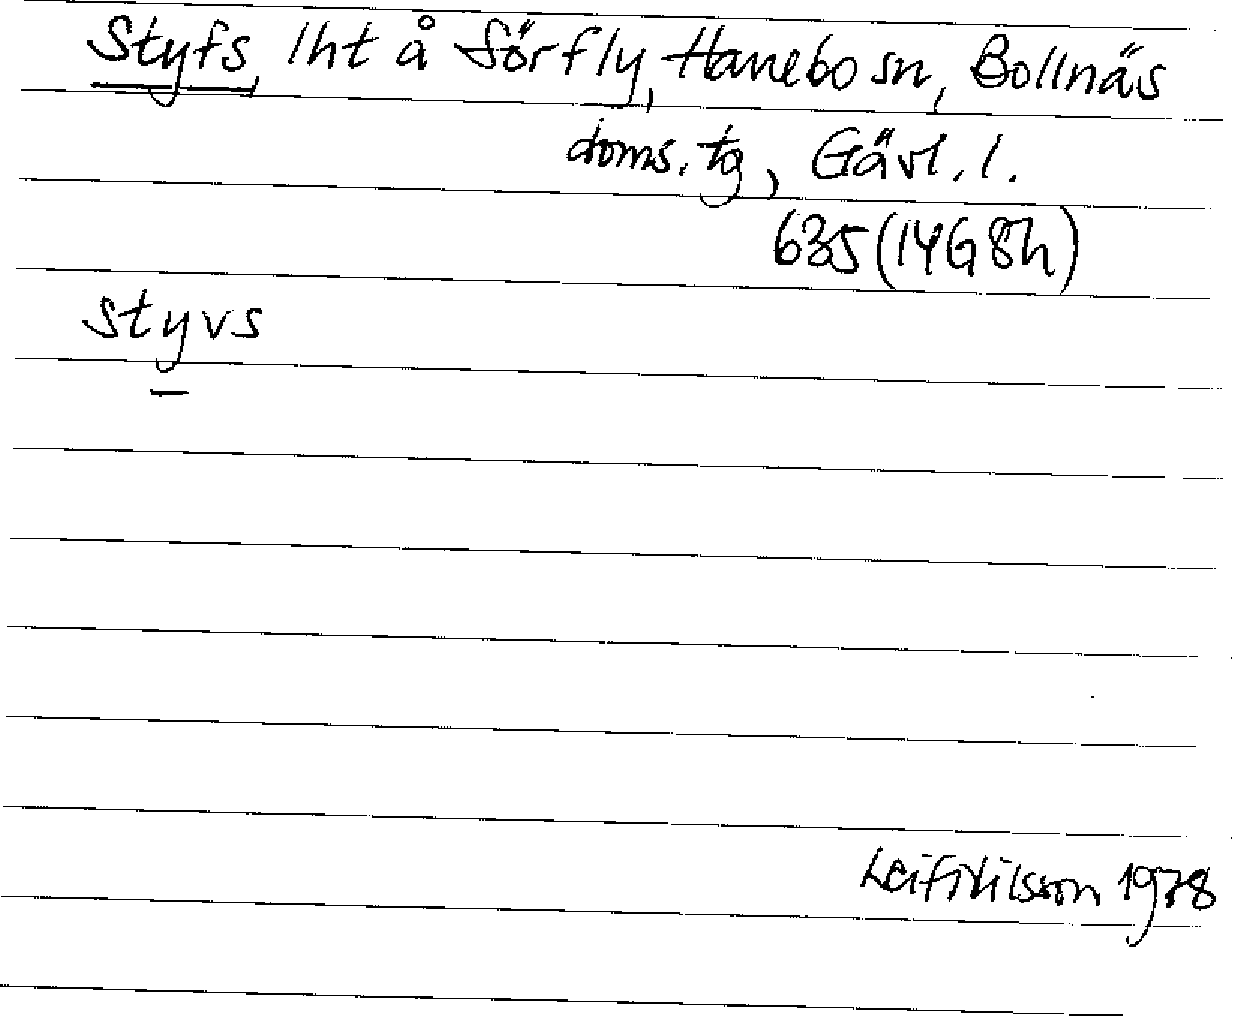 Styfs, lht å Sörfly, Hanebo sn, Bollnäs
doms. tg, Gävl. l.
635 (14G 8h)
styvs
Leif Nilsson 1978